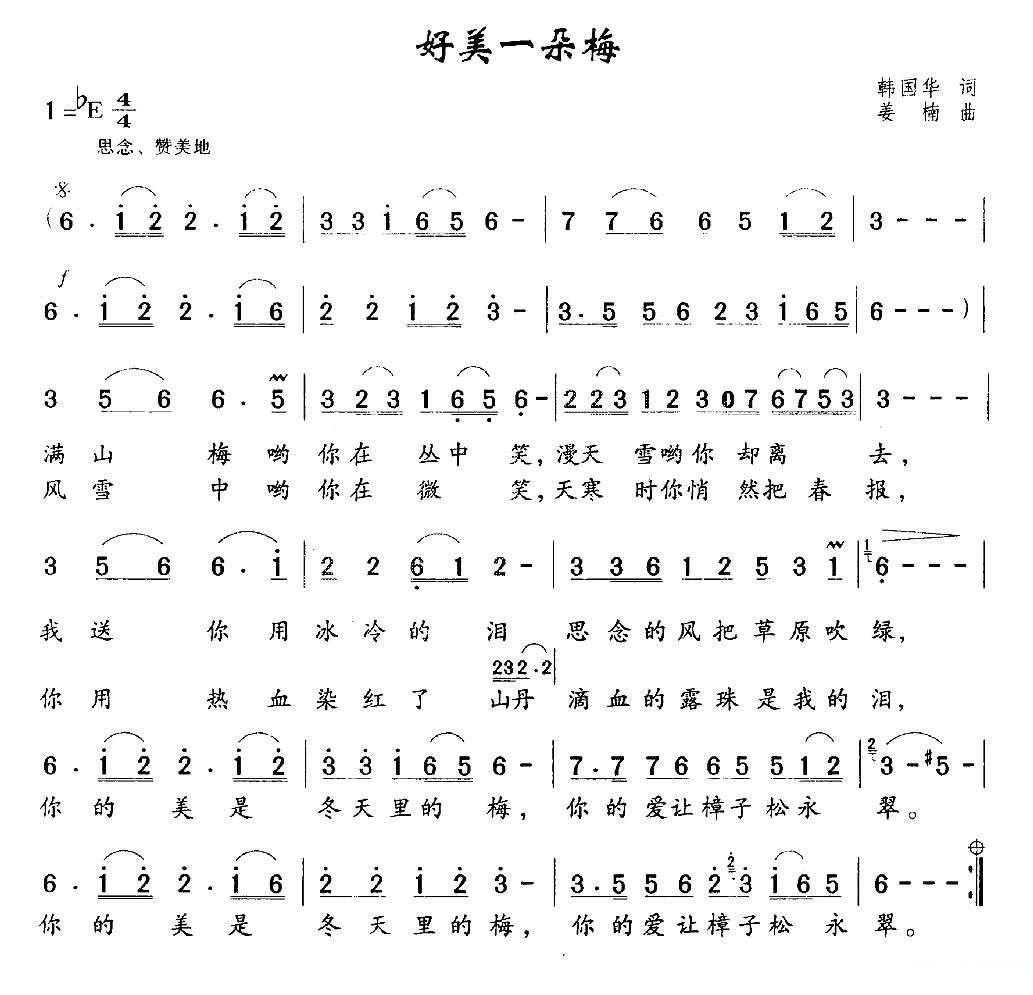 好美一朵梅
韩国华 词
1=♭E 4/4
姜楠 曲
思念、赞美地
(6 . i 2 2 . i 2 | 3 3 i 6 5 6 - | 7 7 6 6 5 1 2 | 3 - - - |
f
6 . i 2 2 . i 6 | 2 2 i 2 3 - | 3 . 5 5 6 2 3 i 6 5 | 6 - - - ) |
3 5 6 6 . 5 | 3 2 3 1 6 5 6 - | 2 2 3 1 2 3 0 7 6 7 5 3 | 3 - - - |
满山 梅哟你在 丛中 笑,漫天 雪哟你 却离 去,
风雪 中哟你在 微 笑,天寒 时你悄 然把 春报,
3 5 6 6 . i | 2 2 6 1 2 - | 3 3 6 1 2 5 3 1 | 1 6 - - - |
我送 你用冰冷的 泪 思念的风把草原吹绿,
2 3 2 . 2
你用 热血染红了 山丹 滴血的露珠是我的泪,
6 . i 2 2 . i 2 | 3 3 i 6 5 6 - | 7 . 7 7 6 6 5 5 1 2 | 2 3 - #5 - |
你的 美是 冬天里的 梅,你的爱让樟子松永 翠。
6 . i 2 2 . i 6 | 2 2 i 2 3 - | 3 . 5 5 6 2 2 3 i 6 5 | 6 - - - :|
你的 美是 冬天里的梅,你的爱让樟子松永翠。